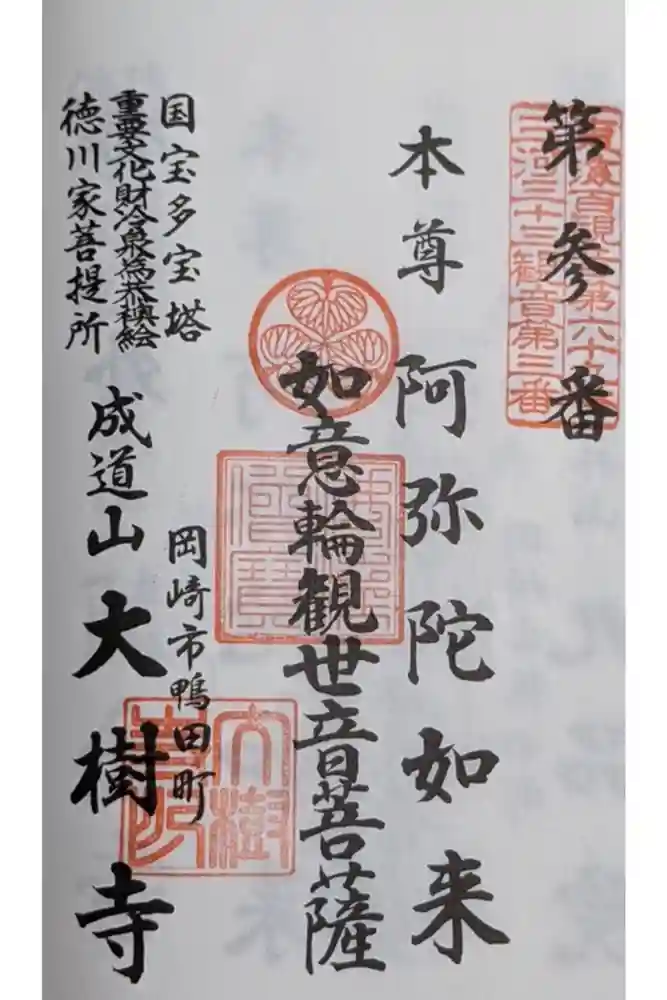 第参番
三河三十三観音第三番
本尊 阿弥陀如来
如意輪観世音菩薩
国宝多宝塔
重要文化財冷泉為恭襖絵
徳川家菩提所
岡崎市鴨田町
成道山 大樹寺
大樹寺